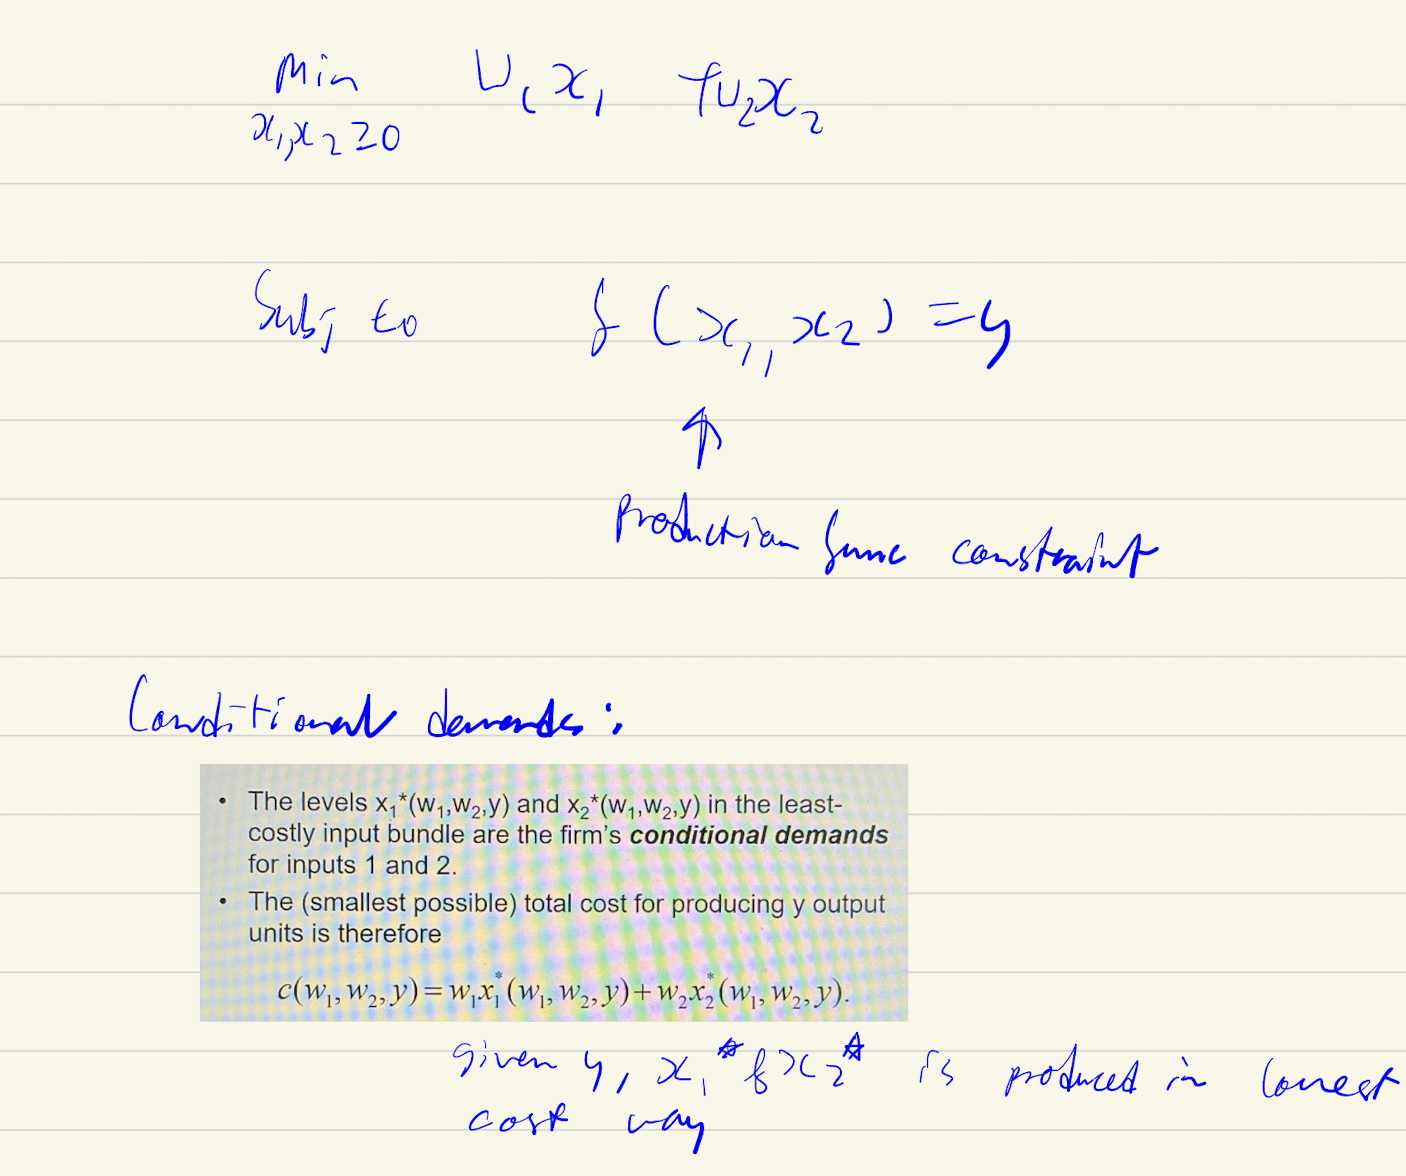 Min w₁x₁ + w₂x₂
x₁,x₂≥0
Subj to f(x₁, x₂) = y
↑
Production func constraint
Conditional demands:
• The levels x₁*(w₁,w₂,y) and x₂*(w₁,w₂,y) in the least-
costly input bundle are the firm's conditional demands
for inputs 1 and 2.
• The (smallest possible) total cost for producing y output
units is therefore
c(w₁, w₂, y) = w₁x₁*(w₁, w₂, y) + w₂x₂*(w₁, w₂, y).
given y, x₁* & x₂* is produced in lowest
cost way